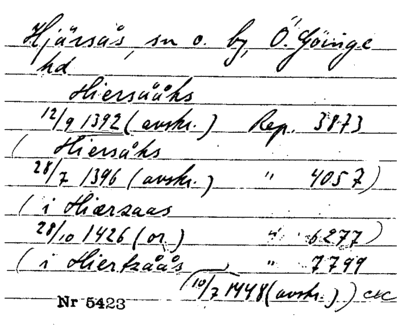 Hjärsås, sn o. by, Ö. Göinge
hd
Hiersååhs
12/9 1392 (avskr.) Rep. 3873
( Hiersåhs
28/7 1396 (avskr.) " 4057)
( i Hiærzaas
28/10 1426 (or.) " 6277)
( i Hiertzåås " 7799
(10/7 1448 (avskr.)) etc
Nr 5423